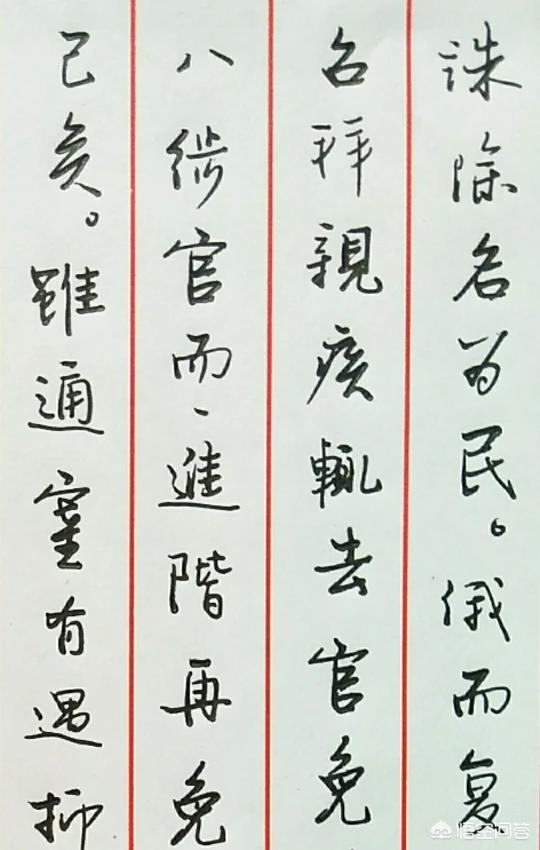 誅除名为民。俄而复
召拜親疾輒去官免
八徙官而一進階再免
已矣。雖通塞有遇抑
悟空问答